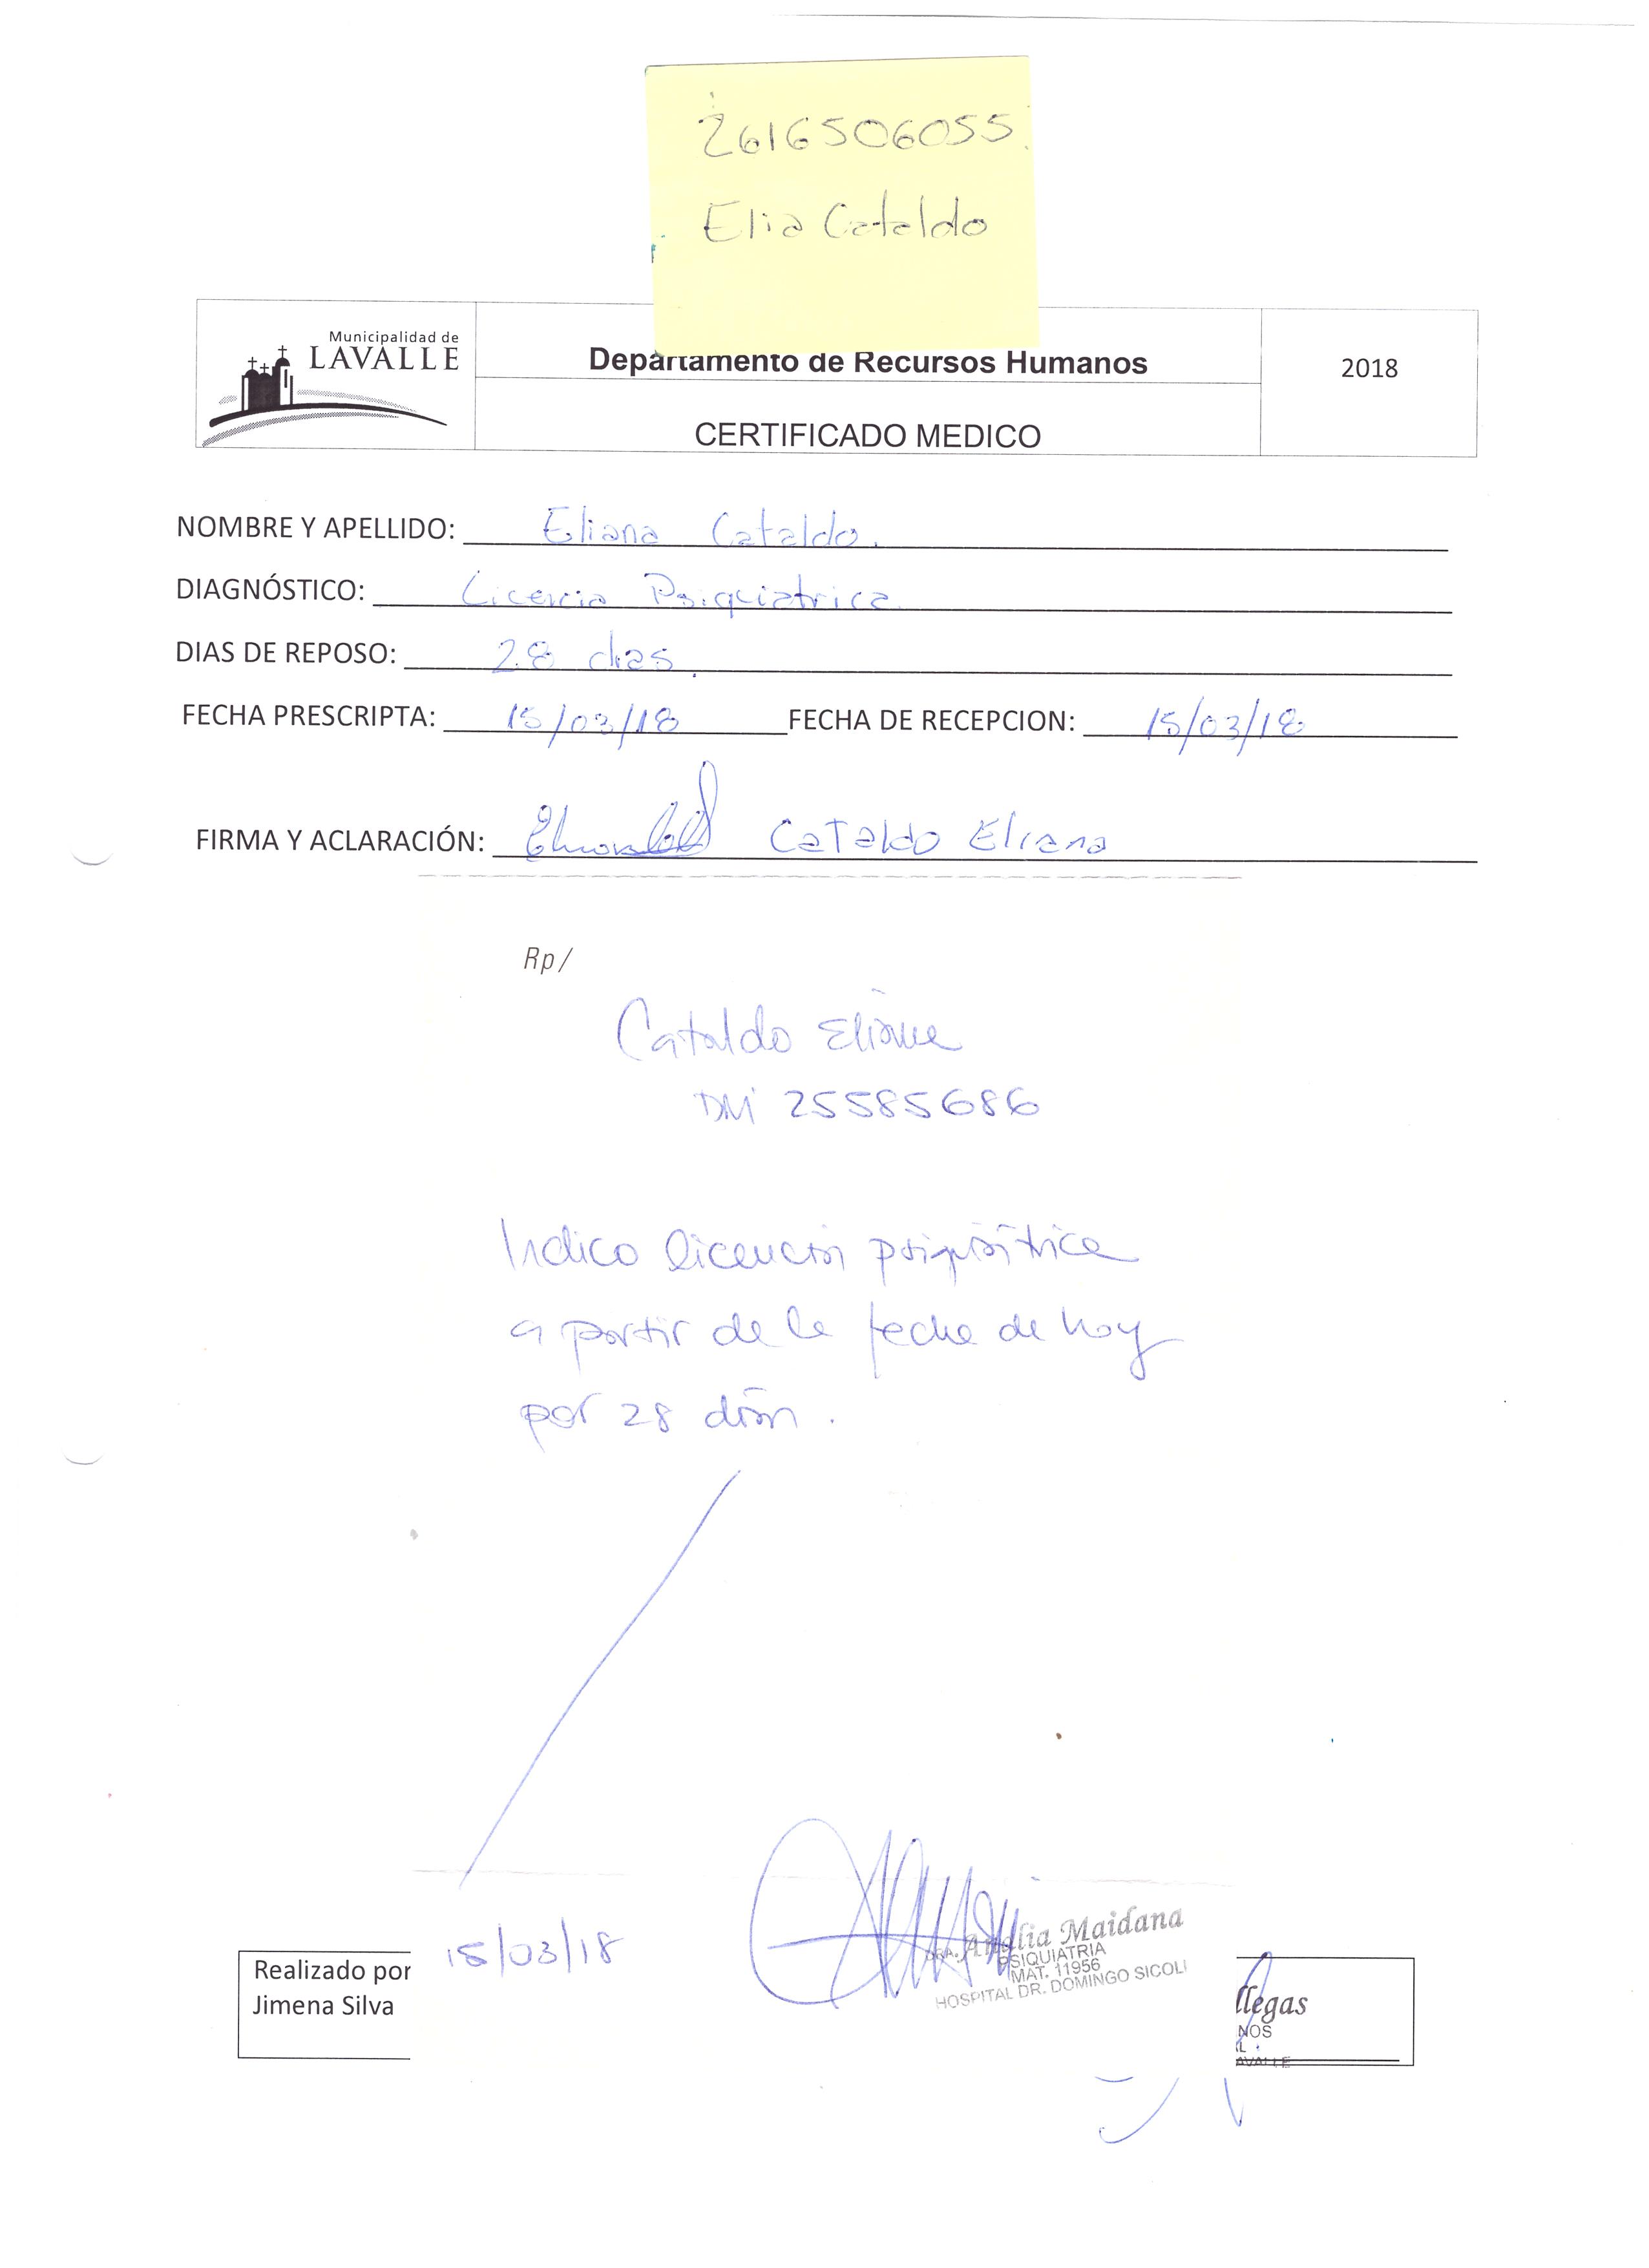 2616506055
Elia Cataldo
Municipalidad de
LAVALLE
Departamento de Recursos Humanos
2018
CERTIFICADO MEDICO
NOMBRE Y APELLIDO: Eliana Cataldo.
DIAGNÓSTICO: Licencia Psiquiatrica
DIAS DE REPOSO: 28 dias.
FECHA PRESCRIPTA: 15/03/18 FECHA DE RECEPCION: 15/03/18
FIRMA Y ACLARACIÓN: Cataldo Eliana
Rp/
Cataldo Eliana
DNI 25585686
Indico licencia psiquiátrica
a partir de la fecha de hoy
por 28 días.
15/03/18
DRA. Analia Maidana
PSIQUIATRIA
MAT. 11956
HOSPITAL DR. DOMINGO SICOLI
Realizado por
Jimena Silva
llegas
NOS
AVALLE